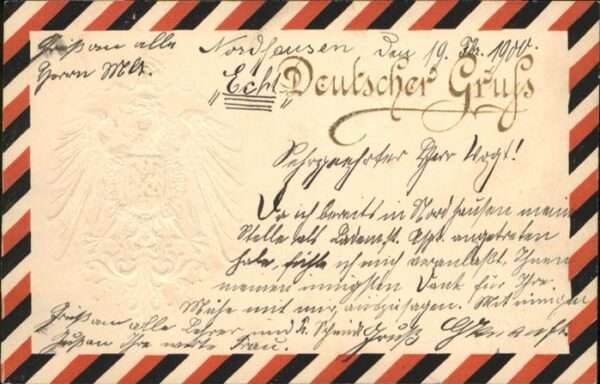 Gruß an alle Nordhausen Den 19. Fbr. 1900.
Herrn
„Echt" Deutscher Gruss
Sehrgeehrter Herr Vogt!
Da ich bereits in Nordhausen mein
Stelle als angetreten
habe, fühle ich mich veranlaßt, Ihnen
meinen innigsten Dank für Ihre
Mühe mit mir auszusagen. Mit innigen
Gruß an alle Lehrer und Gruß
Ihre werte Frau.